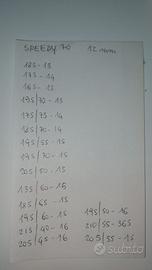 SPEEDY 70 12 mm
185 - 13
175 - 14
165 - 13
195/70 - 13
175/75 - 14
185/70 - 14
195/55 - 15
195/70 - 15
205/50 - 15
135/60 - 15
185/65 - 15
195/60 - 15
215/40 - 16
205/45 - 16
195/50 - 16
210/55 - 365
205/55 - 15